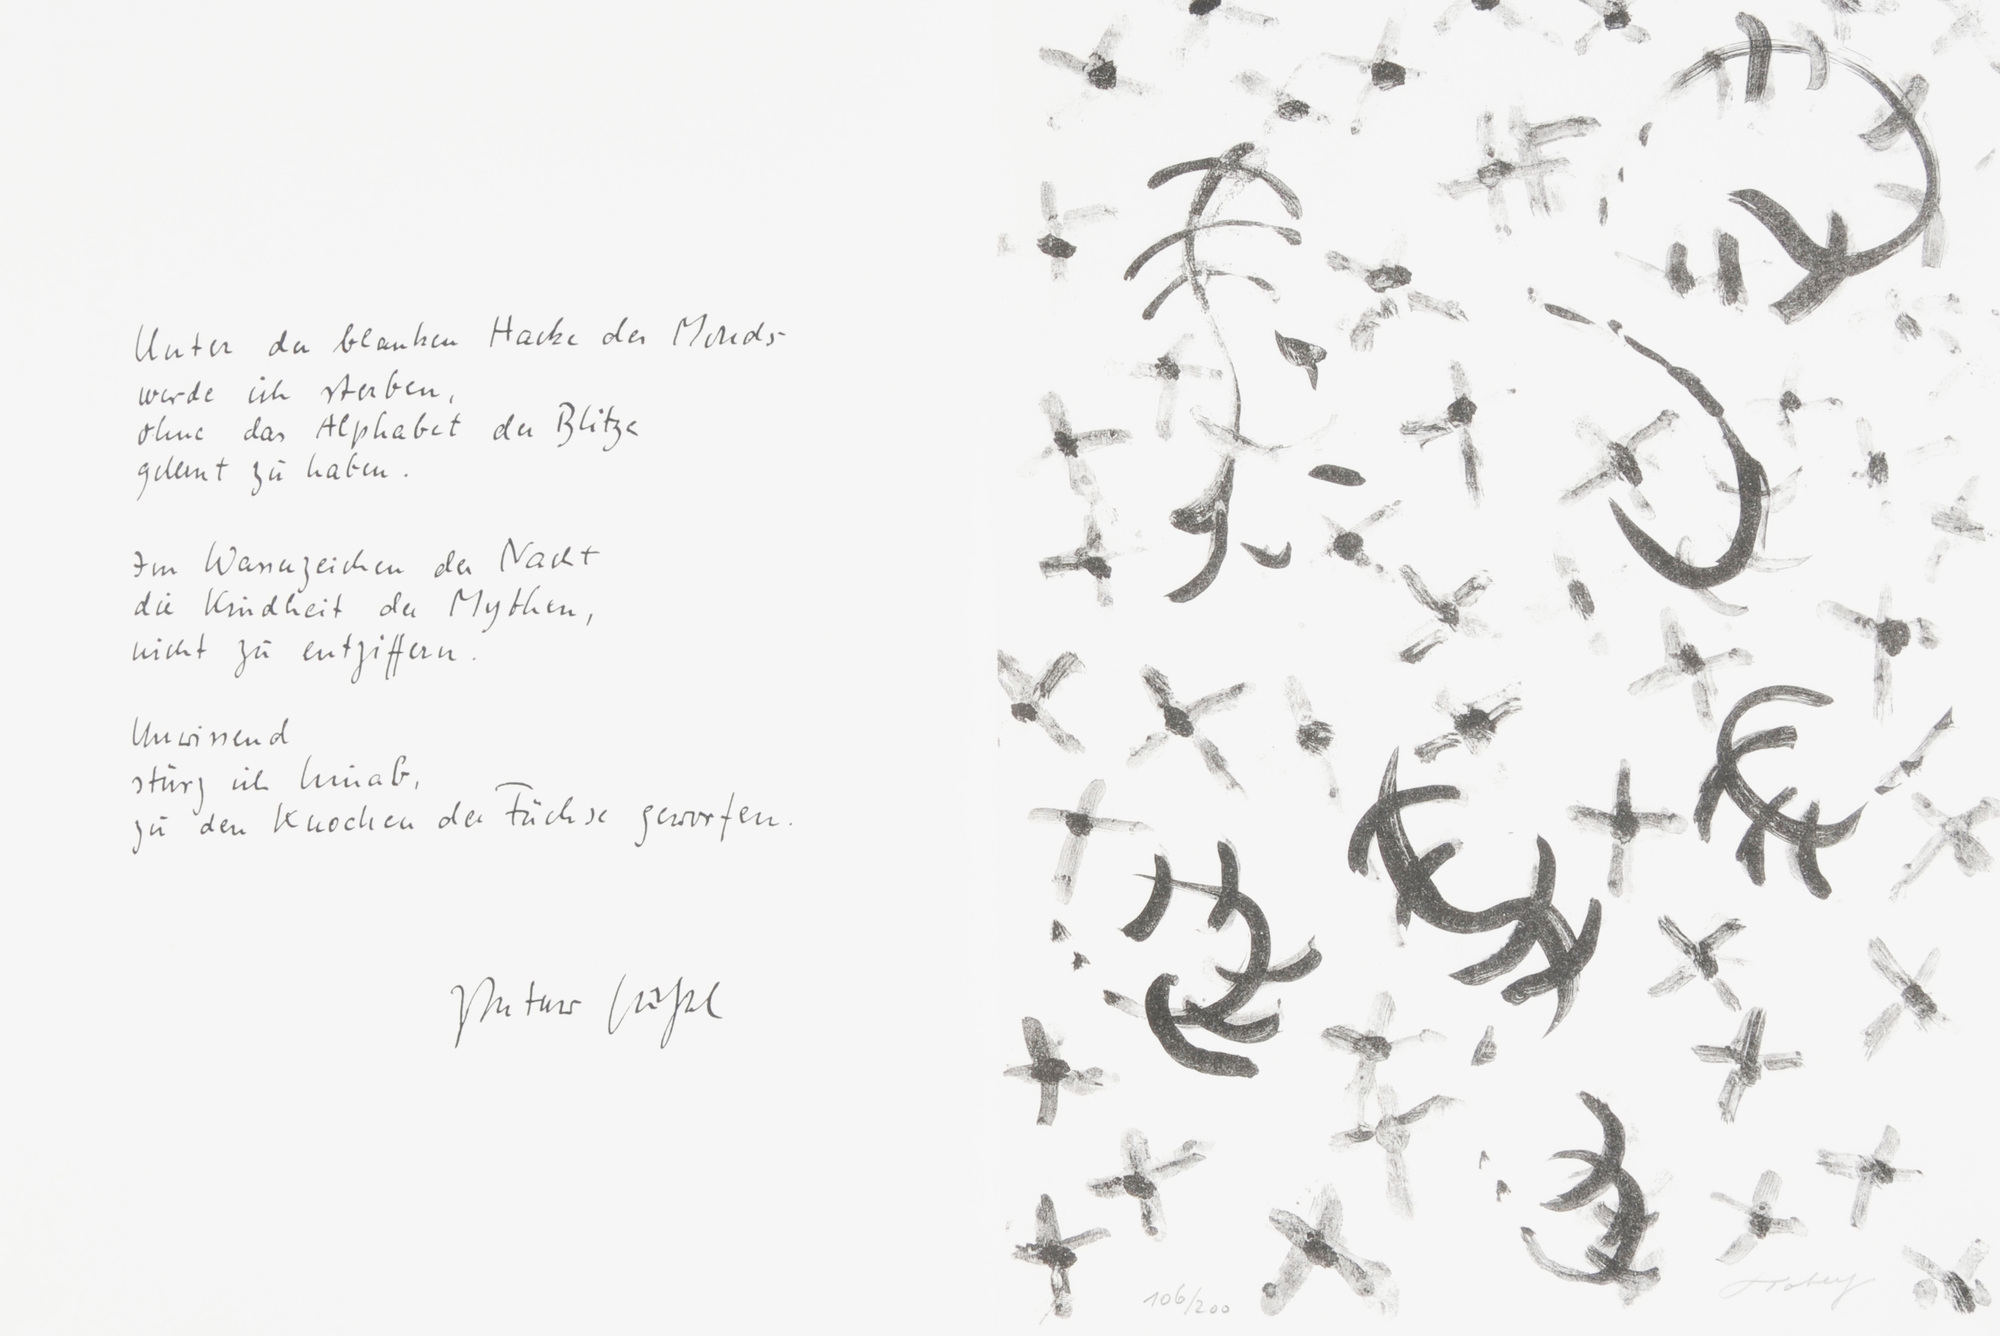 Unter der blanken Hacke des Monds
werde ich sterben,
ohne das Alphabet der Blitze
gelernt zu haben.
Im Wasserzeichen der Nacht
die Kindheit der Mythen,
nicht zu entziffern.
Unwissend
stürz ich hinab,
zu den Knochen der Füchse geworfen.
106/200
Tobey